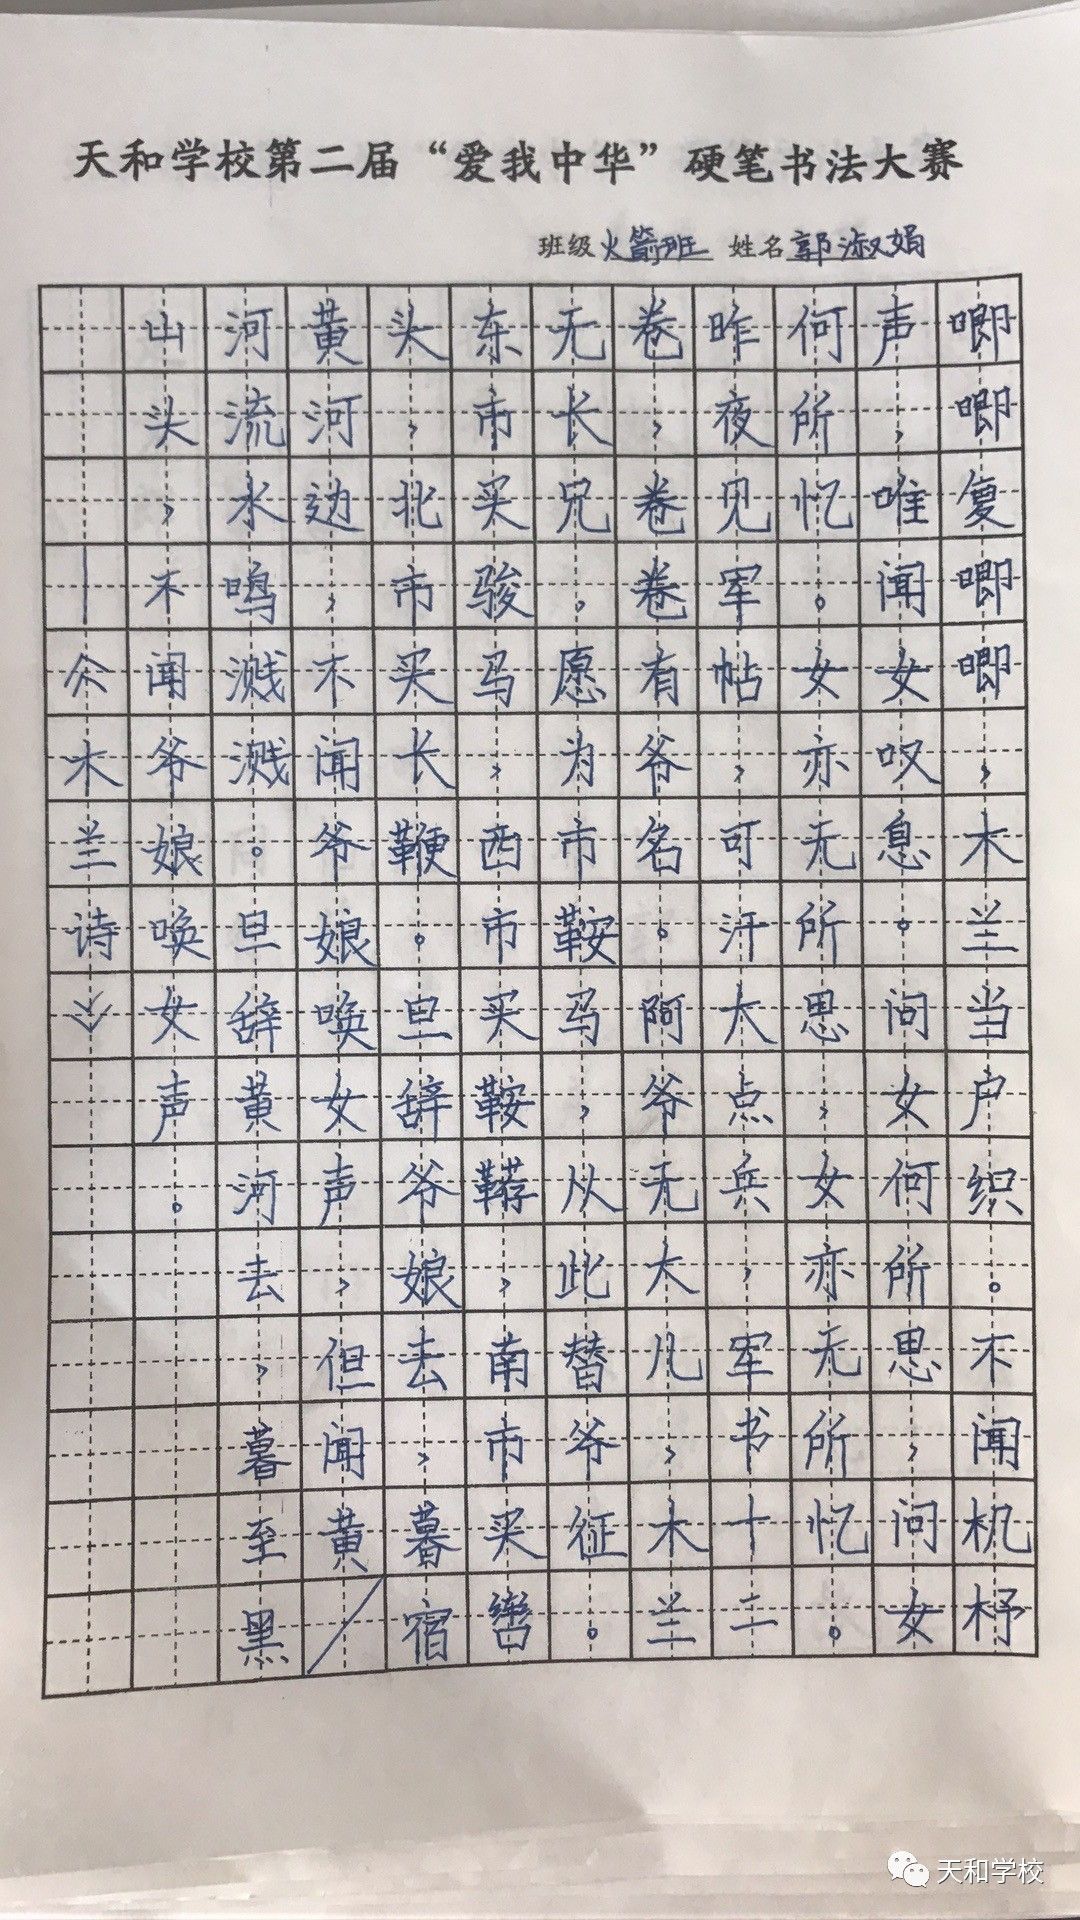 天和学校第二届“爱我中华”硬笔书法大赛
班级 火箭班 姓名 郭淑娟
唧唧复唧唧，木兰当户织。不闻机杼
声，唯闻女叹息。问女何所思，问女
何所忆。女亦无所思，女亦无所忆。
昨夜见军帖，可汗大点兵，军书十二
卷，卷卷有爷名。阿爷无大儿，木兰
无长兄。愿为市鞍马，从此替爷征。
东市买骏马，西市买鞍鞯，南市买辔
头，北市买长鞭。旦辞爷娘去，暮宿
黄河边，不闻爷娘唤女声，但闻黄
河流水鸣溅溅。旦辞黄河去，暮至黑
山头，不闻爷娘唤女声。
—《木兰诗》
天和学校